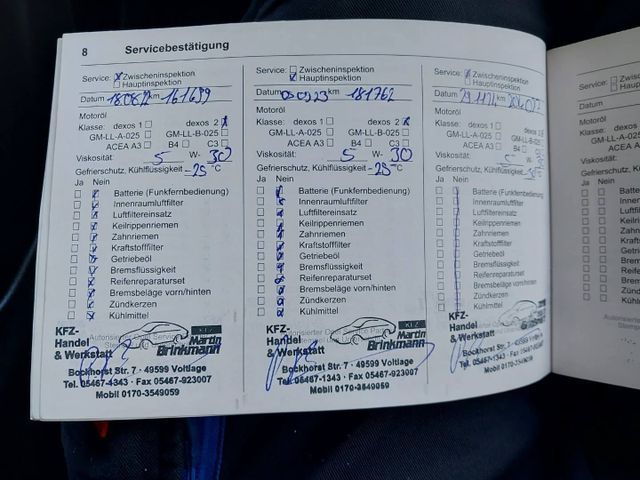 8 Servicebestätigung
Service: Zwischeninspektion
Hauptinspektion
Datum 18.08.22 km 161699
Motoröl
Klasse: dexos 1 dexos 2
GM-LL-A-025 GM-LL-B-025
ACEA A3 B4 C3
Viskosität: 5 W- 30
Gefrierschutz, Kühlflüssigkeit -25 °C
Ja Nein
Batterie (Funkfernbedienung)
Innenraumluftfilter
Luftfiltereinsatz
Keilrippenriemen
Zahnriemen
Kraftstofffilter
Getriebeöl
Bremsflüssigkeit
Reifenreparaturset
Bremsbeläge vorn/hinten
Zündkerzen
Kühlmittel
KFZ-
Handel
& Werkstatt
KFZ
Martin
Brinkmann
Bockhorst Str. 7 · 49599 Voltlage
Tel. 05467-1343 · Fax 05467-923007
Mobil 0170-3549059
Service: Zwischeninspektion
Hauptinspektion
Datum km 181762
Motoröl
Klasse: dexos 1 dexos 2
GM-LL-A-025 GM-LL-B-025
ACEA A3 B4 C3
Viskosität: 5 W- 30
Gefrierschutz, Kühlflüssigkeit -25 °C
Ja Nein
Batterie (Funkfernbedienung)
Innenraumluftfilter
Luftfiltereinsatz
Keilrippenriemen
Zahnriemen
Kraftstofffilter
Getriebeöl
Bremsflüssigkeit
Reifenreparaturset
Bremsbeläge vorn/hinten
Zündkerzen
Kühlmittel
KFZ-
Handel
& Werkstatt
KFZ
Martin
Brinkmann
Bockhorst Str. 7 · 49599 Voltlage
Tel. 05467-1343 · Fax 05467-923007
Mobil 0170-3549059
Service: Zwischeninspektion
Hauptinspektion
Datum
Motoröl
Klasse: dexos 1 dexos 2
GM-LL-A-025 GM-LL-B-025
ACEA A3 B4 C3
Viskosität: 5 W-
Gefrierschutz, Kühlflüssigkeit
Ja Nein
Batterie (Funkfernbedienung)
Innenraumluftfilter
Luftfiltereinsatz
Keilrippenriemen
Zahnriemen
Kraftstofffilter
Getriebeöl
Bremsflüssigkeit
Reifenreparaturset
Bremsbeläge vorn/hinten
Zündkerzen
Kühlmittel
KFZ-
Handel
& Werkstatt
Martin
Brinkmann
Bockhorst Str. 7 · 49599 Voltlage
Tel. 05467-1343 · Fax 05467-923007
Mobil 0170-3549059
Service:
Datum
Motoröl
Klasse:
Viskosität:
Gefrierschutz,
Ja Nein